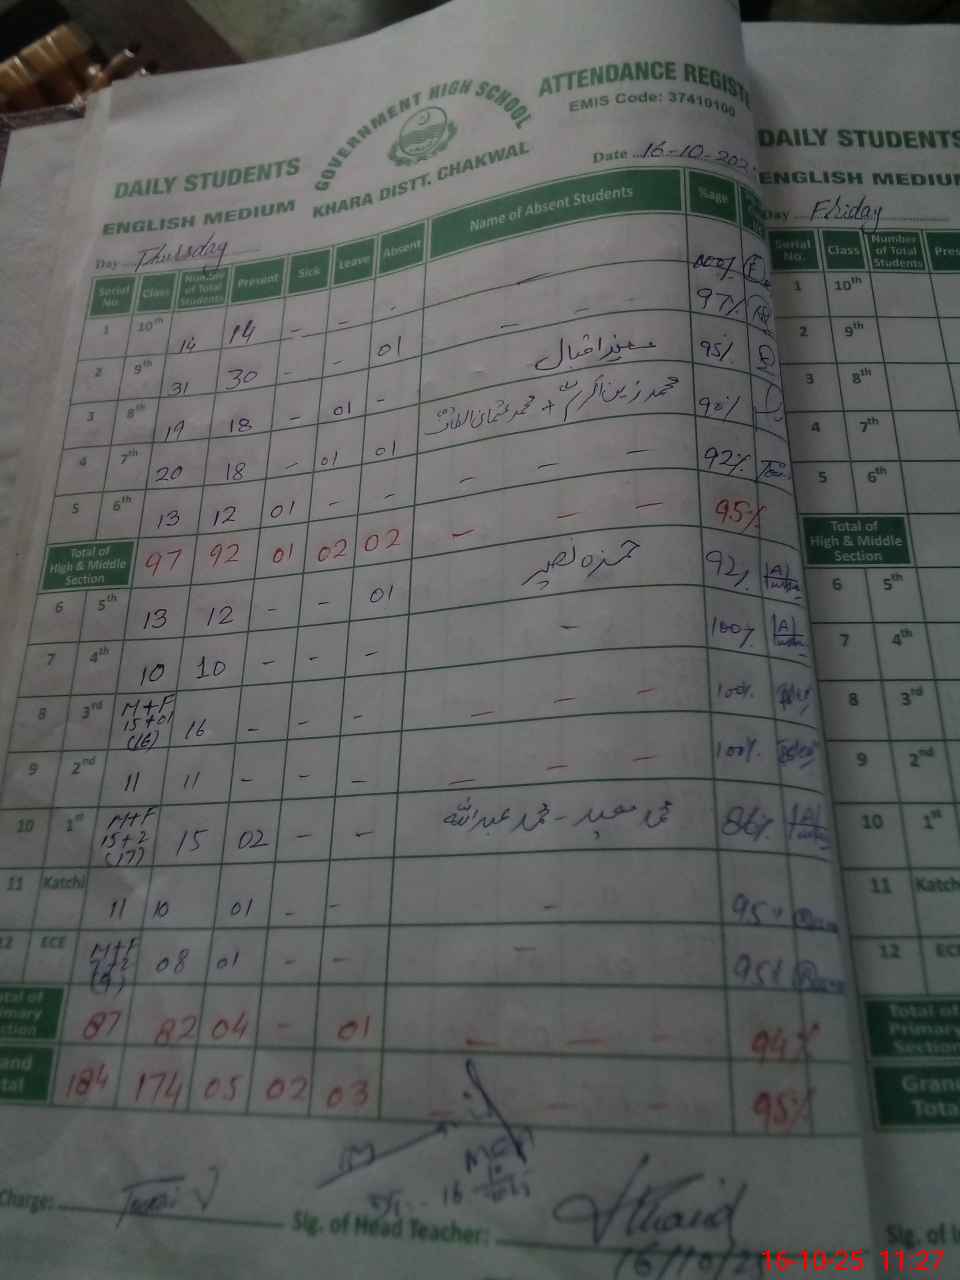 GOVERNMENT HIGH SCHOOL
KHARA DISTT. CHAKWAL
ATTENDANCE REGISTE
EMIS Code: 37410100
DAILY STUDENTS
ENGLISH MEDIUM
Date 16-10-202
Day Thursday
Serial No. Class Number of Total Students Present Sick Leave Absent Name of Absent Students %age
1 10th 14 14 - - - - 100%
2 9th 31 30 - - 01 - - - 97%
3 8th 19 18 - 01 - اقبال 95%
4 7th 20 18 - 01 01 محمد زین اکرم + محمد عثمان 90%
5 6th 13 12 01 - - - - - 92%
Total of High & Middle Section 97 92 01 02 02 - - - 95%
6 5th 13 12 - - 01 حمزہ نصیر 92%
7 4th 10 10 - - - - 100%
8 3rd M+F 15+01 (16) 16 - - - - - - 100%
9 2nd 11 11 - - - - - - 100%
10 1st M+F 15+2 (17) 15 02 - - محمد عبید - محمد عبداللہ 86%
11 Katchi 11 10 01 - - - 95%
12 ECE M+F 7+2 (9) 08 01 - - - 95%
otal of rimary ction 87 82 04 - 01 - - - 94%
and tal 184 174 05 02 03 - - - 95%
Charge:
Sig. of Head Teacher:
16/10/25
DAILY STUDENTS
ENGLISH MEDIUM
Day Friday
Serial No. Class Number of Total Students Pres
1 10th
2 9th
3 8th
4 7th
5 6th
Total of High & Middle Section
6 5th
7 4th
8 3rd
9 2nd
10 1st
11 Katch
12 EC
Total of Primary Section
Gran Tota
Sig. of I
16-10-25 11:27